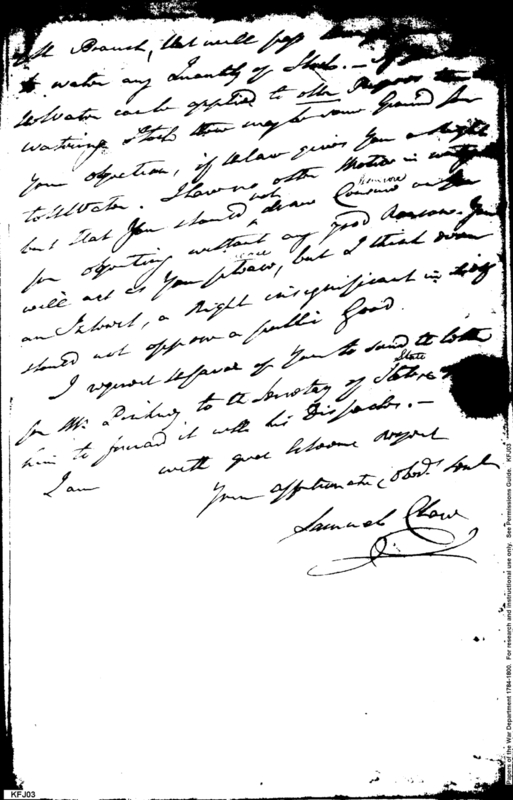 Branch, that will pass
to water any Quantity of Stock. — If
Water can be applied to other Purposes than
watering Stock there may be some Ground for
Your objection, if the Law gives You a Right
to the Water. I have no other Motive in
but that You should not draw Censure on You
for objecting without any good Reason. You
will act as You please, but I think even
an Interest, a Right insignificant in itself
should not oppose a public Good.
I request the favor of You to send the letter
for Mr Pinkney to the Secretary of State
him to forward it with his Dispatches. —
I am with great Esteem & regard
Your affectionate, Obed.
Samuel Chase
KFJ03
Papers of the War Department 1784-1800. For research and instructional use only. See Permissions Guide. KFJ03